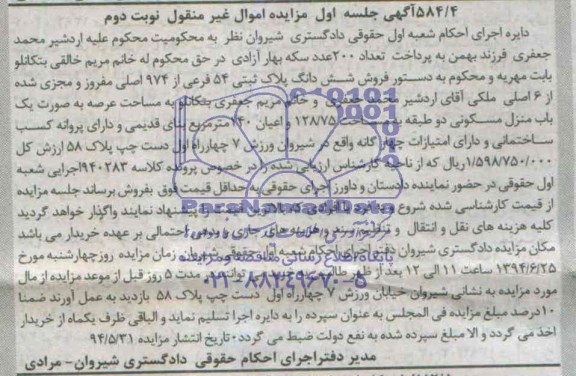 ۵۸۴/۴آگهی جلسه اول مزایده اموال غیر منقول نوبت دوم
دایره اجرای احکام شعبه اول حقوقی دادگستری شیروان نظر به محکومیت محکوم علیه اردشیر محمد
جعفری فرزند بهمن به پرداخت تعداد ۲۰۰عدد سکه بهار آزادی در حق محکوم له خانم مریم خالقی بتکانلو
بابت مهریه و محکوم به دستور فروش شش دانگ پلاک ثبتی ۵۴ فرعی از ۹۷۴ اصلی مفروز و مجزی شده
از ۶ اصلی ملکی آقای اردشیر محمد جعفری و خانم مریم جعفری بتکانلو به مساحت عرصه به صورت یک
باب منزل مسکونی دو طبقه به مساحت ۱۲۸/۷۵ اعیان ۱۴۰مترمربع بنای قدیمی و دارای پروانه کسب
ساختمانی و دارای امتیازات چهار گانه واقع در شیروان ورزش ۷ چهارراه اول دست چپ پلاک ۵۸ ارزش کل
۱/۵۹۸/۷۵۰/۰۰۰ریال که از ناحیه کارشناس ارزیابی شده را در خصوص پرونده کلاسه ۹۴۰۲۸۳اجرایی شعبه
اول حقوقی در حضور نماینده دادستان و داورز اجرای حقوقی به حداقل قیمت فوق بفروش برساند جلسه مزایده
از قیمت کارشناسی شده شروع و به فرد یا افرادی که بالاترین قیمت را پیشنهاد نمایند واگذار خواهد گردید
کلیه هزینه های نقل و انتقال و تنظیم سند و هزینه های جاری و بدهی احتمالی بر عهده خریدار می باشد
مکان مزایده دادگستری شیروان دفتر اجرای احکام شعبه اول حقوقی شیروان زمان مزایده روزچهارشنبه مورخ
۱۳۹۴/۶/۲۵ ساعت ۱۱ الی ۱۲ بعد از ظهر طالبین به خرید می توانند در مدت ۵ روز قبل از موعد مزایده از مال
مورد مزایده به نشانی شیروان خیابان ورزش ۷ چهارراه اول دست چپ پلاک ۵۸ بازدید به عمل آورند ضمنا
۱۰درصد مبلغ مزایده فی المجلس به عنوان سپرده را به دایره اجرا تسلیم نماید و الباقی ظرف یکماه از خریدار
اخذ می گردد و الا مبلغ سپرده شده به نفع دولت ضبط می گردد۰تاریخ انتشار مزایده ۹۴/۵/۳۱
مدیر دفتراجرای احکام حقوقی دادگستری شیروان- مرادی
ParsNamadData
پایگاه اطلاع رسانی مناقصه و مزایده
۰۲۱-۸۸۳۴۹۶۷۰-۵